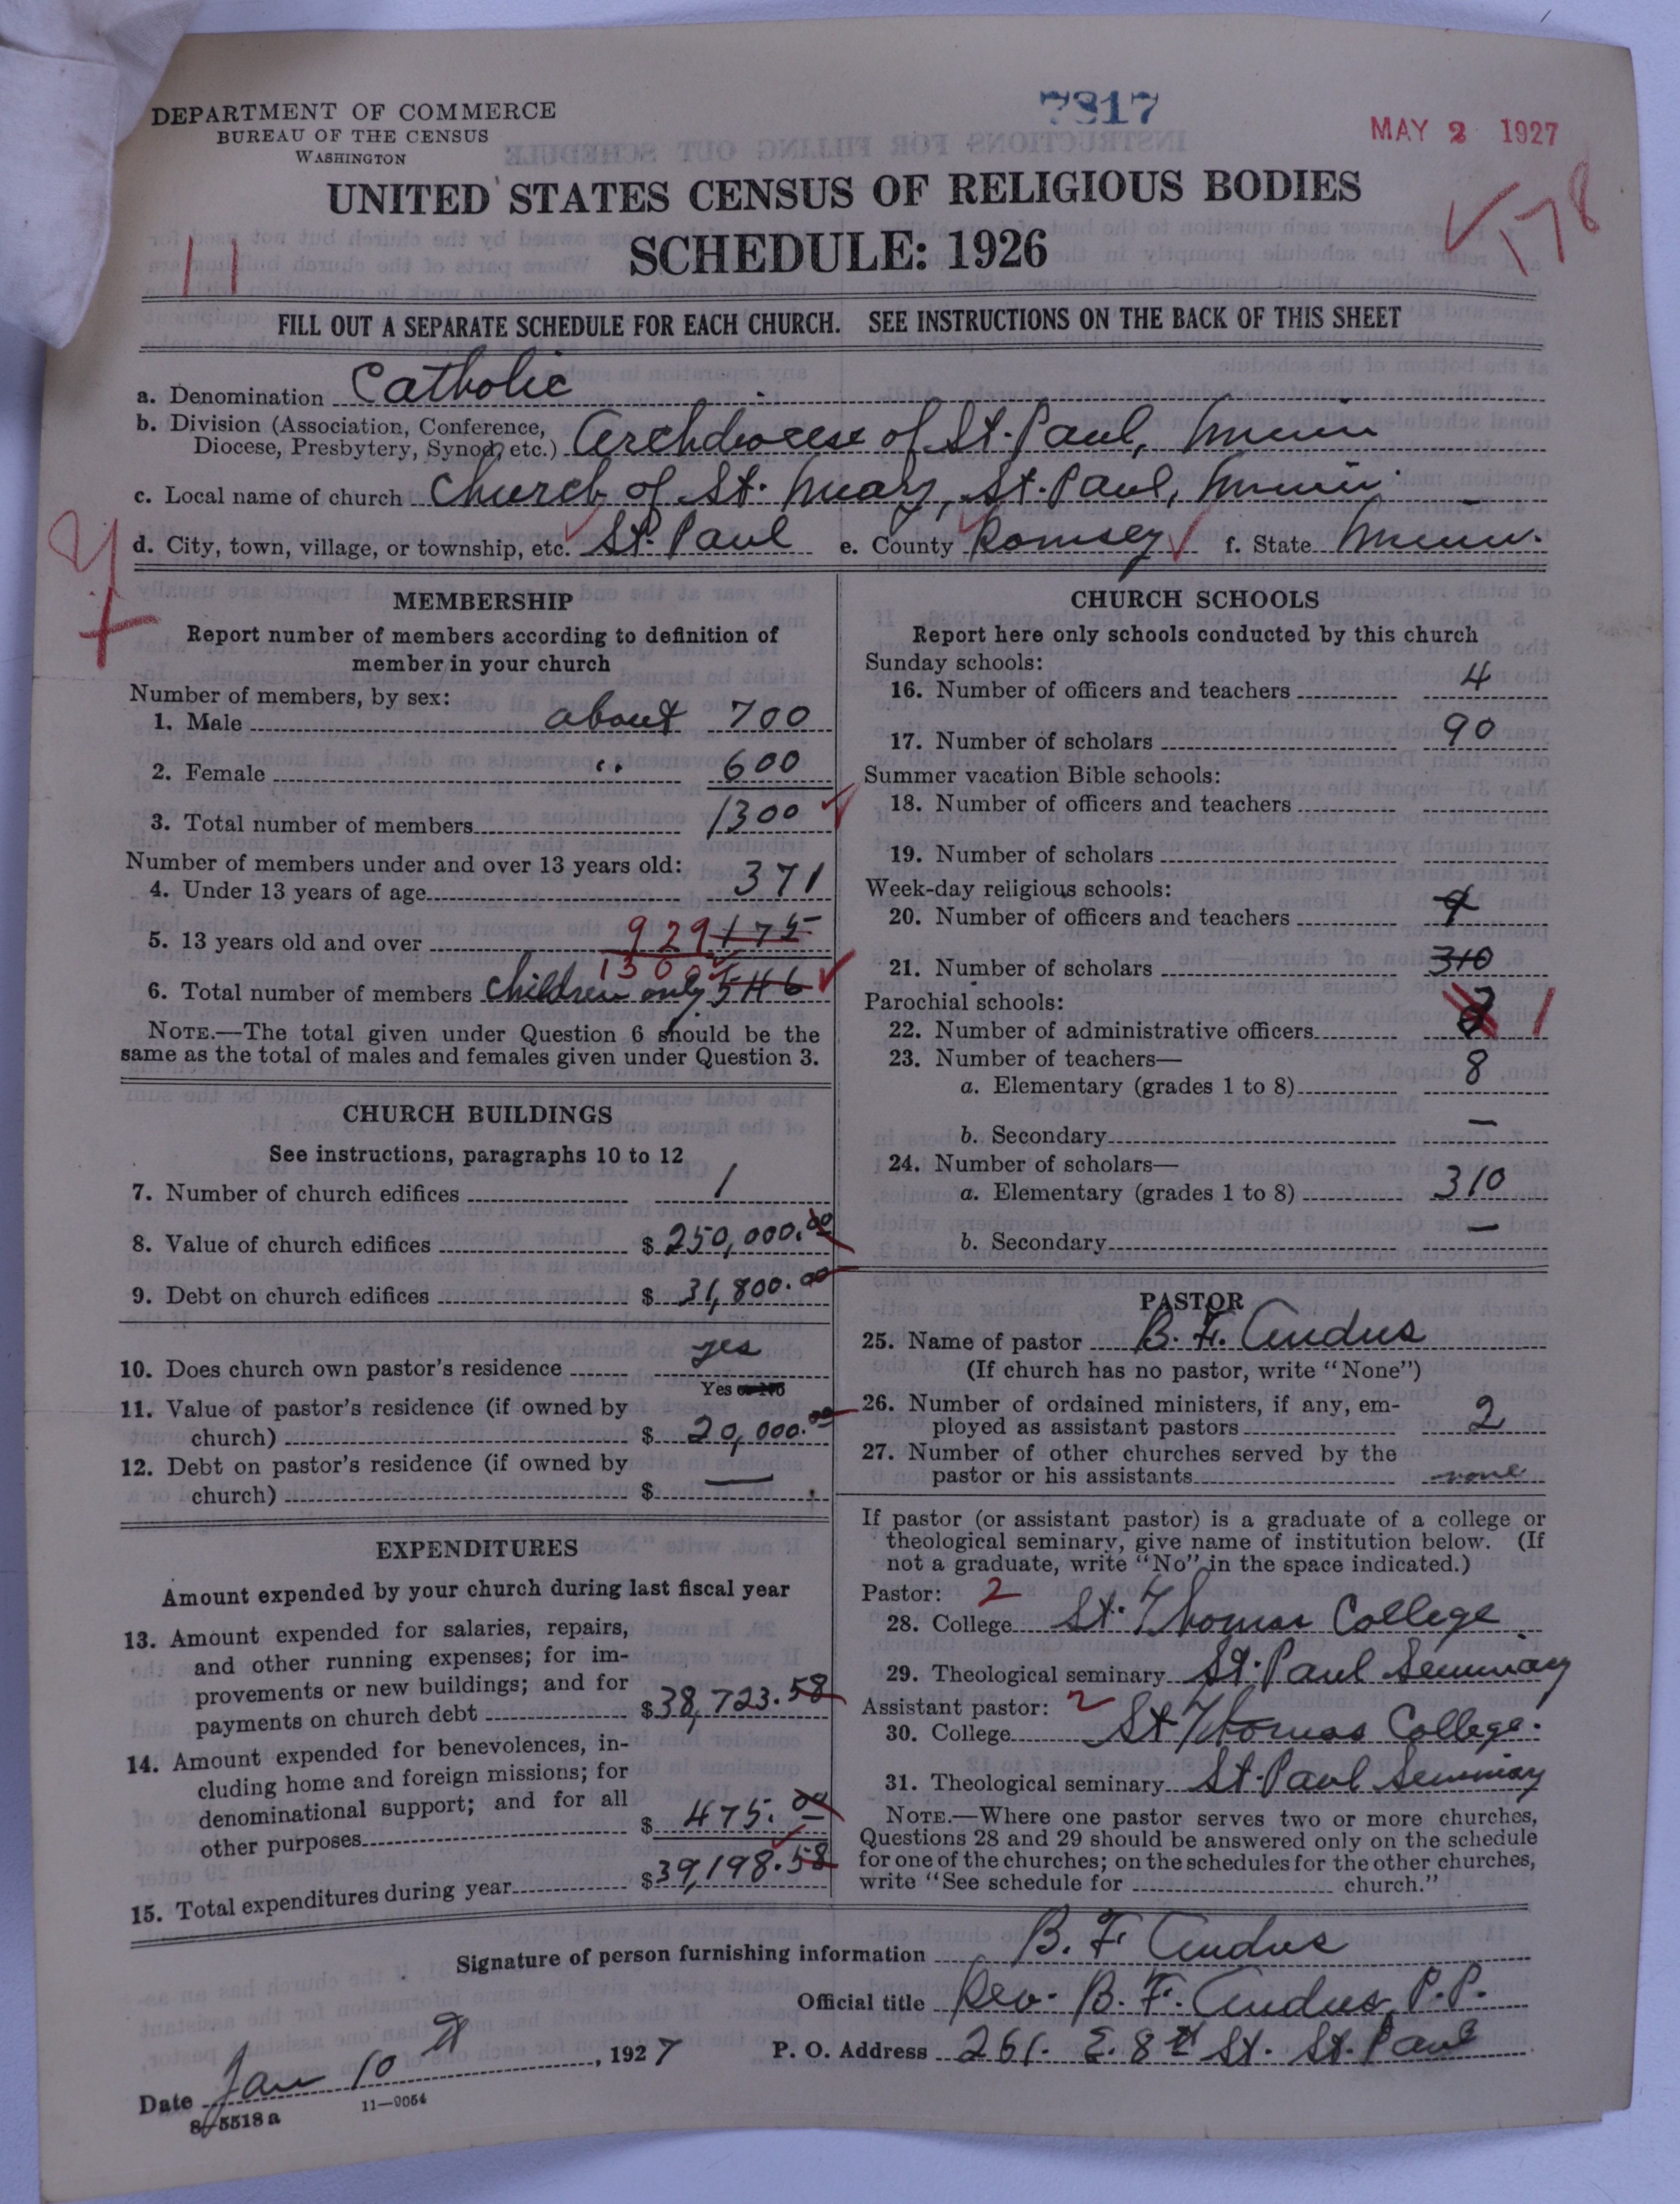 DEPARTMENT OF COMMERCE
BUREAU OF THE CENSUS
WASHINGTON
7817
MAY 2 1927
UNITED STATES CENSUS OF RELIGIOUS BODIES
SCHEDULE: 1926
11
178
FILL OUT A SEPARATE SCHEDULE FOR EACH CHURCH. SEE INSTRUCTIONS ON THE BACK OF THIS SHEET
a. Denomination Catholic
b. Division (Association, Conference, Diocese, Presbytery, Synod, etc.) Archdiocese of St. Paul, Minn
c. Local name of church Church of St. Mary, St. Paul, Minn.
d. City, town, village, or township, etc. St. Paul e. County Ramsey f. State Minn.
MEMBERSHIP
Report number of members according to definition of
member in your church
Number of members, by sex:
1. Male about 700
2. Female " 600
3. Total number of members 1300
Number of members under and over 13 years old:
4. Under 13 years of age 371
5. 13 years old and over 929 175
1300
6. Total number of members children only 546
NOTE.—The total given under Question 6 should be the
same as the total of males and females given under Question 3.
CHURCH BUILDINGS
See instructions, paragraphs 10 to 12
7. Number of church edifices 1
8. Value of church edifices $ 250,000.00
9. Debt on church edifices $ 31,800.00
10. Does church own pastor's residence yes
Yes or No
11. Value of pastor's residence (if owned by
church) $ 20,000.00
12. Debt on pastor's residence (if owned by
church) $ —
EXPENDITURES
Amount expended by your church during last fiscal year
13. Amount expended for salaries, repairs,
and other running expenses; for im-
provements or new buildings; and for
payments on church debt $38,723.58
14. Amount expended for benevolences, in-
cluding home and foreign missions; for
denominational support; and for all
other purposes $ 475.00
15. Total expenditures during year $39,198.58
CHURCH SCHOOLS
Report here only schools conducted by this church
Sunday schools:
16. Number of officers and teachers 4
17. Number of scholars 90
Summer vacation Bible schools:
18. Number of officers and teachers
19. Number of scholars
Week-day religious schools:
20. Number of officers and teachers
21. Number of scholars 310
Parochial schools:
22. Number of administrative officers 1
23. Number of teachers—
a. Elementary (grades 1 to 8) 8
b. Secondary —
24. Number of scholars—
a. Elementary (grades 1 to 8) 310
b. Secondary —
PASTOR
25. Name of pastor B. F. Andus
(If church has no pastor, write "None")
26. Number of ordained ministers, if any, em-
ployed as assistant pastors 2
27. Number of other churches served by the
pastor or his assistants none
If pastor (or assistant pastor) is a graduate of a college or
theological seminary, give name of institution below. (If
not a graduate, write "No" in the space indicated.)
Pastor: 2
28. College St. Thomas College
29. Theological seminary St. Paul Seminary
Assistant pastor: 2
30. College St Thomas College.
31. Theological seminary St. Paul Seminary
NOTE.—Where one pastor serves two or more churches,
Questions 28 and 29 should be answered only on the schedule
for one of the churches; on the schedules for the other churches,
write "See schedule for church."
Signature of person furnishing information B. F. Andus
Official title Rev. B. F. Andus, P.P.
Date Jan 10th, 1927 P. O. Address 261. E. 8th St. St. Paul
8-5518a 11—9054